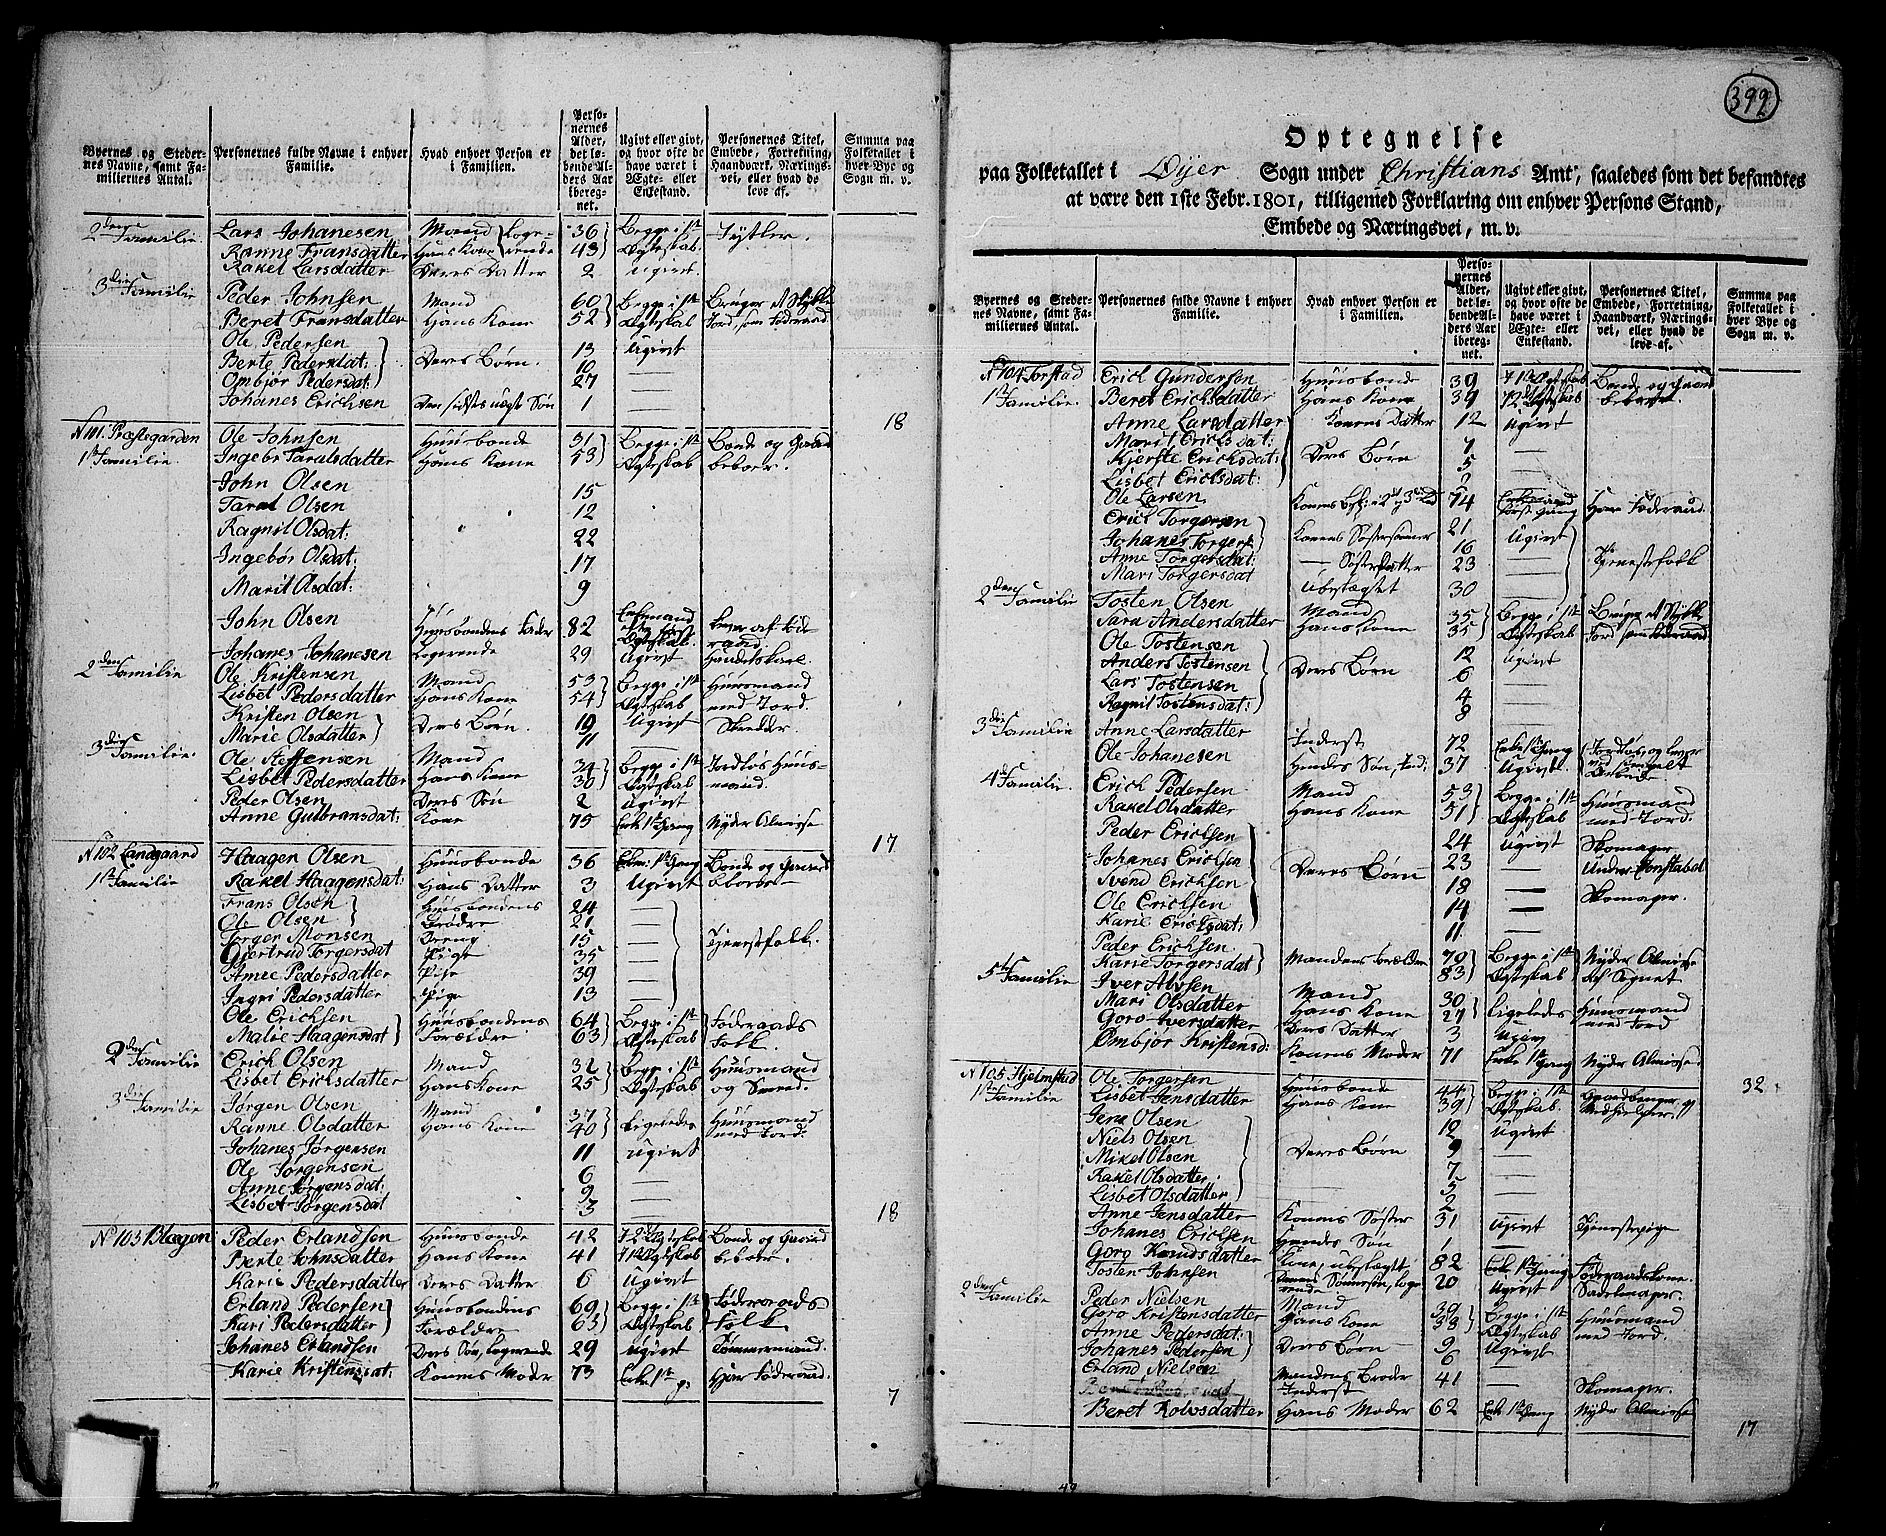 Byernes og Steder- Personernes fulde Navne i enhver Hvad enhver Person er Perso-nernes Alder, det lø-bende Al-ders Aar iberegnet. Ugivt eller givt, og hvor ofte de have været i Ægte- eller Enkestand. Personernes Titel, Embede, Forretning, Haandværk, Nærings-vei, eller hvad de leve af. Summa paa Folketallet i hver Bye og Sogn m. v.
nes Navne, samt Fa- Familie. i Familien.
miliernes Antal.
2den Familie. Lars Johanesen Mand 36 Begge i 1ste
Ranne Fransdatter Hans Kone 43 Ægteskab.
Rakel Larsdatter Deres Datter 2 Ugivt.
3die Familie Peder Johnsen Mand 60 Begge i 1ste
Beret Fransdatter Hans Kone 52 Ægteskab
Ole Pedersen 13 Ugivt
Berte Pedersdat: Deres Børn. 10 —
Ombjør Pedersdat: 27 —
Johanes Erichsen 1 — 18
N 101. Præstgarden Ole Johnsen Huusbonde 31 Begge i 1ste Bonde og Gaard
1ste Familie. Ingebr Taralsdatter Hans Kone 53 Ægteskab beboer.
John Olsen 15
Taral Olsen 12
Ragnil Olsdat: 22
Ingebør Olsdat: 17
Marit Olsdat: 9
John Olsen Huusbondens Fader 82 Enkemand
Johanes Johanesen Logerende 29 Ugivt
2den Familie Ole Kristensen Mand 53 Begge i 1ste Huusmand
Lisbet Pedersdatter Hans Kone 54 Ægteskab med Jord.
Kristen Olsen 19 Ugivt Skredder
Marie Olsdatter Deres Børn. 11
3die Familie. Ole Steffensen Mand 34 Begge i 1ste Jordløs Huus-
Lisbet Pedersdatter Hans Kone 30 Ægteskab mand.
Peder Olsen Deres Søn 2 Ugivt
Anne Gulbransdat: Kone 75 Enke 1ste Gang Nyder Almisse 17
N 102 Landgaard Haagen Olsen Huusbonde 36 Enkem: 1ste Gang Bonde og Gaard
1ste Familie Rakel Haagensdat: Hans Datter 3 Ugivt
Frans Olsen Huusbondens 24 —
Ole Olsen Brødre 21 —
Torgor Monsen Dreng 15 — Tjenestefolk.
Gjertrud Torgersdat Pige 35 —
Anne Pedersdatter Pige 39 —
Ingri Pedersdatter Pige 13 —
Ole Erichsen Huusbondens 64 Begge i 1ste Føderaads
Malie Haagensdat Forældre 63 Ægteskab folk.
2den Familie Erich Olsen Mand 32 Begge i 1ste Huusmand
Lisbet Erichsdatter Hans Kone 25 Ægteskab og Smed.
3die Familie Jørgen Olsen Mand 37 Ligeledes Huusmand
Ranne Olsdatter Hans Kone 40 med Jord.
Johanes Jørgensen 11 Ugivt
Ole Jørgensen 6 —
Anne Jørgensdat: 9 —
Lisbet Jørgensdat 3 — 18
N 103 Blægen Peder Erlandsen Huusbonde 42 Bonde og Gaard
Berte Johnsdatter Hans Kone 41 beboer.
Karie Pedersdatter Deres Datter 6 Ugivt
Erland Pedersen Huusbondens 69 Begge i 1ste Føderaads-
Kari Pedersdatter Forældre 63 Ægteskab folk
Johanes Erlandsen Deres Søn, Logerende 29 Ugivt Tømmermand.
Karie Kristensdat: Konens Moder 73 Enke 1ste g: Har Føderaad. 7

399
Optegnelse
paa Folketallet i Øijer Sogn under Christians Amt, saaledes som det befandtes
at være den 1ste Febr. 1801, tilligemed Forklaring om enhver Persons Stand,
Embede og Næringsvei, m. v.
Byernes og Steder- Personernes fulde Navne i enhver Hvad enhver Person er Perso-nernes Alder, det lø-bende Al-ders Aar iberegnet. Ugivt eller givt, og hvor ofte de have været i Ægte- eller Enkestand. Personernes Titel, Embede, Forretning, Haandværk, Nærings-vei, eller hvad de leve af. Summa paa Folketallet i hver Bye og Sogn m. v.
nes Navne, samt Fa- Familie. i Familien.
miliernes Antal.
N 104 Torstad Erich Gundersen Huusbonde 39 Bonde og Gaard
1ste Familie. Beret Erichsdatter Hans Kone 39 beboer.
Anne Larsdatter Konens Datter 12 Ugivt
Marit Ericksdat: 7 —
Kjerste Ericksdat: Deres Børn 5 —
Lisbet Ericksdat:
Ole Larsen 74 Har Føderaad.
Erich Torgersen 21 Ugivt
Johanes Torgers: Konens Søstersønner 16 —
Anne Torgersdat: — Søsterdatter 23 — Tjenestefolk
Mari Torgersdat Ubeslægtet 30 —
2den Familie Tosten Olsen Mand 35 Begge i 1ste
Sara Andersdatter Hans Kone 35 Ægteskab
Ole Tostensen 12 Ugivt
Anders Tostensen Deres Børn 6 —
Lars Tostensen 4 —
Ragnil Tostensdat: 8 —
3die Familie Anne Larsdatter Inderst 72 Enke 1ste Gang
Ole Johanesen Hendes Søn, Ind: 37 Ugivt.
4de Familie. Erich Pedersen Mand 53 Begge i 1ste Huusmand
Rakel Olsdatter Hans Kone 51 Ægteskab med Jord.
Peder Ericksen 24 Ugivt Skomager
Johanes Ericksen 23 — Under Constabel
Svend Ericksen Deres Børn 18 — Skomager.
Ole Ericksen 14 —
Karie Ericksdat: 11 —
Peder Ericksen Mandens Forældre 79 Begge i 1ste Nyder Almisse
Karie Torgersdat 83 Ægteskab af Sognet
5te Familie Iver Alvsen Mand 30 Ligeledes Huusmand
Mari Olsdatter Hans Kone 27 med Jord
Goro Iversdatter Deres Datter 3 Ugivt
Ombjør Kristensd: Konens Moder 71 Enke 1ste Gang Nyder Almisse. 32
N 105 Hjelmstad Ole Torgersen Huusbonde 44 Begge i 1ste
1ste Familie Lisbet Jensdatter Hans Kone 39 Ægteskab.
Jens Olsen 12 Ugivt
Niels Olsen 9 —
Mikel Olsen Deres Børn 7 —
Rakel Olsdatter 5 —
Lisbet Olsdatter 2
Anne Jensdatter Konens Søster 31 Ugivt Tjenestepige
Johanes Ericksen Hendes Søn 1 —
Goro Knudsdatter Kone, ubeslægtet 82 Enke 1ste Gang Føderaadskone.
Tosten Johnsen 20 Ugivt Sadelmager.
2den Familie Peder Nielsen Mand 39 Begge i 1ste Huusmand
Goro Kristensdatter Hans Kone 33 Ægteskab med Jord.
Anne Pedersdat: 9 Ugivt
Johanes Pedersen Deres Børn 6 —
Erland Nielsen Mandens Broder Inderst 41 — Skomager.
Beret Rolvsdatter Hans Moder 62 Enke 1ste Gang Nyder Almisse 17